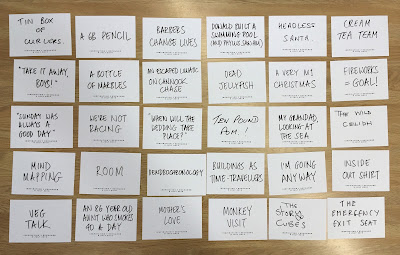 TIN BOX
OF
CURLERS.
A 6B PENCIL
BARBERS
CHANGE LIVES
DONALD BUILT A
SWIMMING POOL
HEADLESS
SANTA.
CREAM
TEA TEAM
"TAKE IT AWAY,
BOYS!"
A BOTTLE
OF MARBLES
AN ESCAPED LUNATIC
ON CANNOCK
CHASE
DEAD
JELLYFISH
A VERY M1
CHRISTMAS
FIREWORKS
= GOAL!
"SUNDAY WAS
ALWAYS A
GOOD DAY"
WE'RE NOT
RACING.
"WHEN WILL THE
WEDDING TAKE
PLACE?"
TEN POUND
POM!
MY GRANDAD,
LOOKING AT
THE SEA
THE WILD
CEILIDH
MIND
MAPPING
ROOM
BUILDINGS AS
TIME-TRAVELLERS
I'M GOING
ANYWAY
INSIDE
OUT SHIRT
VEG
TALK
AN 86 YEAR OLD
AUNT WHO SMOKES
40 A DAY
MOTHER'S
LOVE
MONKEY
VISIT
THE
STORY
CUBES
THE
EMERGENCY
EXIT SEAT